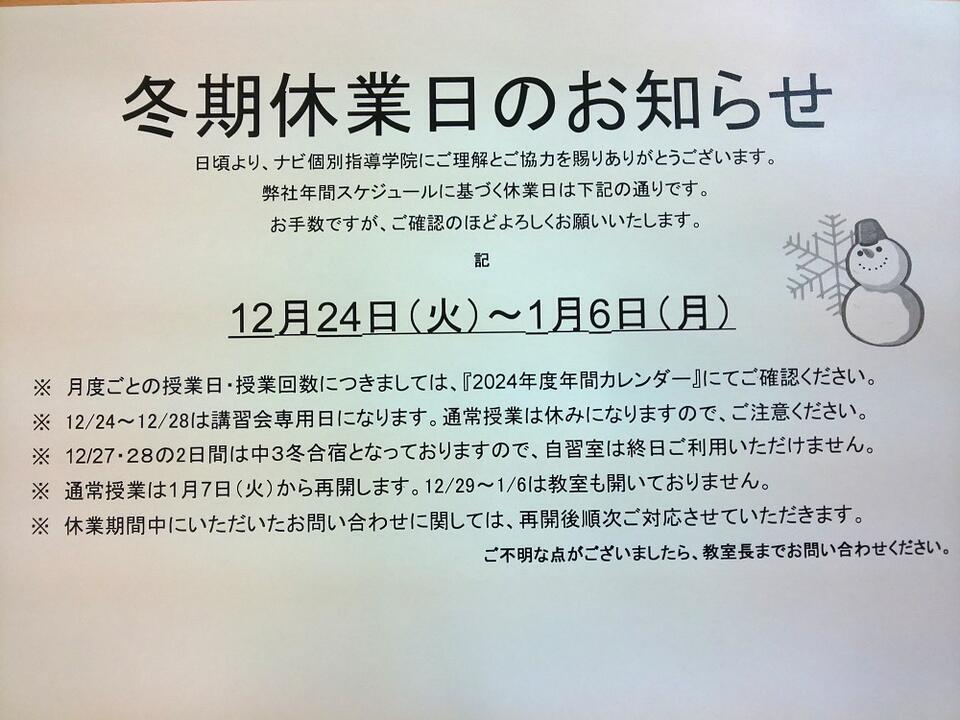 冬期休業日のお知らせ
日頃より、ナビ個別指導学院にご理解とご協力を賜りありがとうございます。
弊社年間スケジュールに基づく休業日は下記の通りです。
お手数ですが、ご確認のほどよろしくお願いいたします。
記
12月24日(火)～1月6日(月)
※ 月度ごとの授業日・授業回数につきましては、『2024年度年間カレンダー』にてご確認ください。
※ 12/24～12/28は講習会専用日になります。通常授業は休みになりますので、ご注意ください。
※ 12/27・28の2日間は中3冬合宿となっておりますので、自習室は終日ご利用いただけません。
※ 通常授業は1月7日(火)から再開します。12/29～1/6は教室も開いておりません。
※ 休業期間中にいただいたお問い合わせに関しては、再開後順次ご対応させていただきます。
ご不明な点がございましたら、教室長までお問い合わせください。